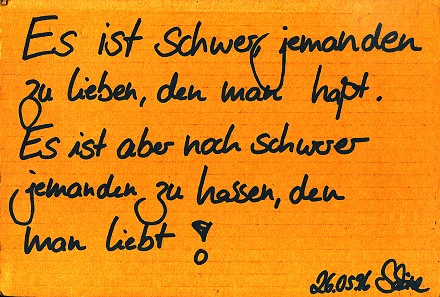 Es ist schwer, jemanden
zu lieben, den man haßt.
Es ist aber noch schwerer
jemanden zu hassen, den
man liebt!
26.05.96